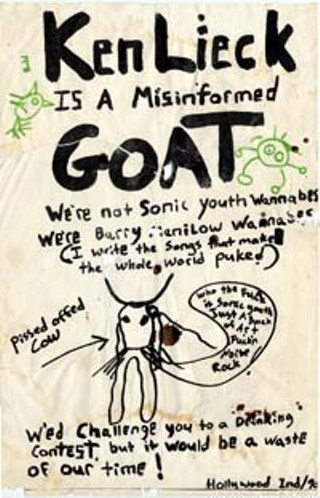 Ken Lieck
IS A Misinformed
GOAT
We're not Sonic Youth Wannabes
We're Barry Manilow Wannabes
(I write the songs that make
the whole world puke)
Pissed offed
Cow
who the Fuck
is Sonic youth
Just A Bunch
of Art
Fuckin
Noise
Rock
We'd Challenge you to a Drinking
Contest, but it would be a waste
of our time!
Hollywood Ind/